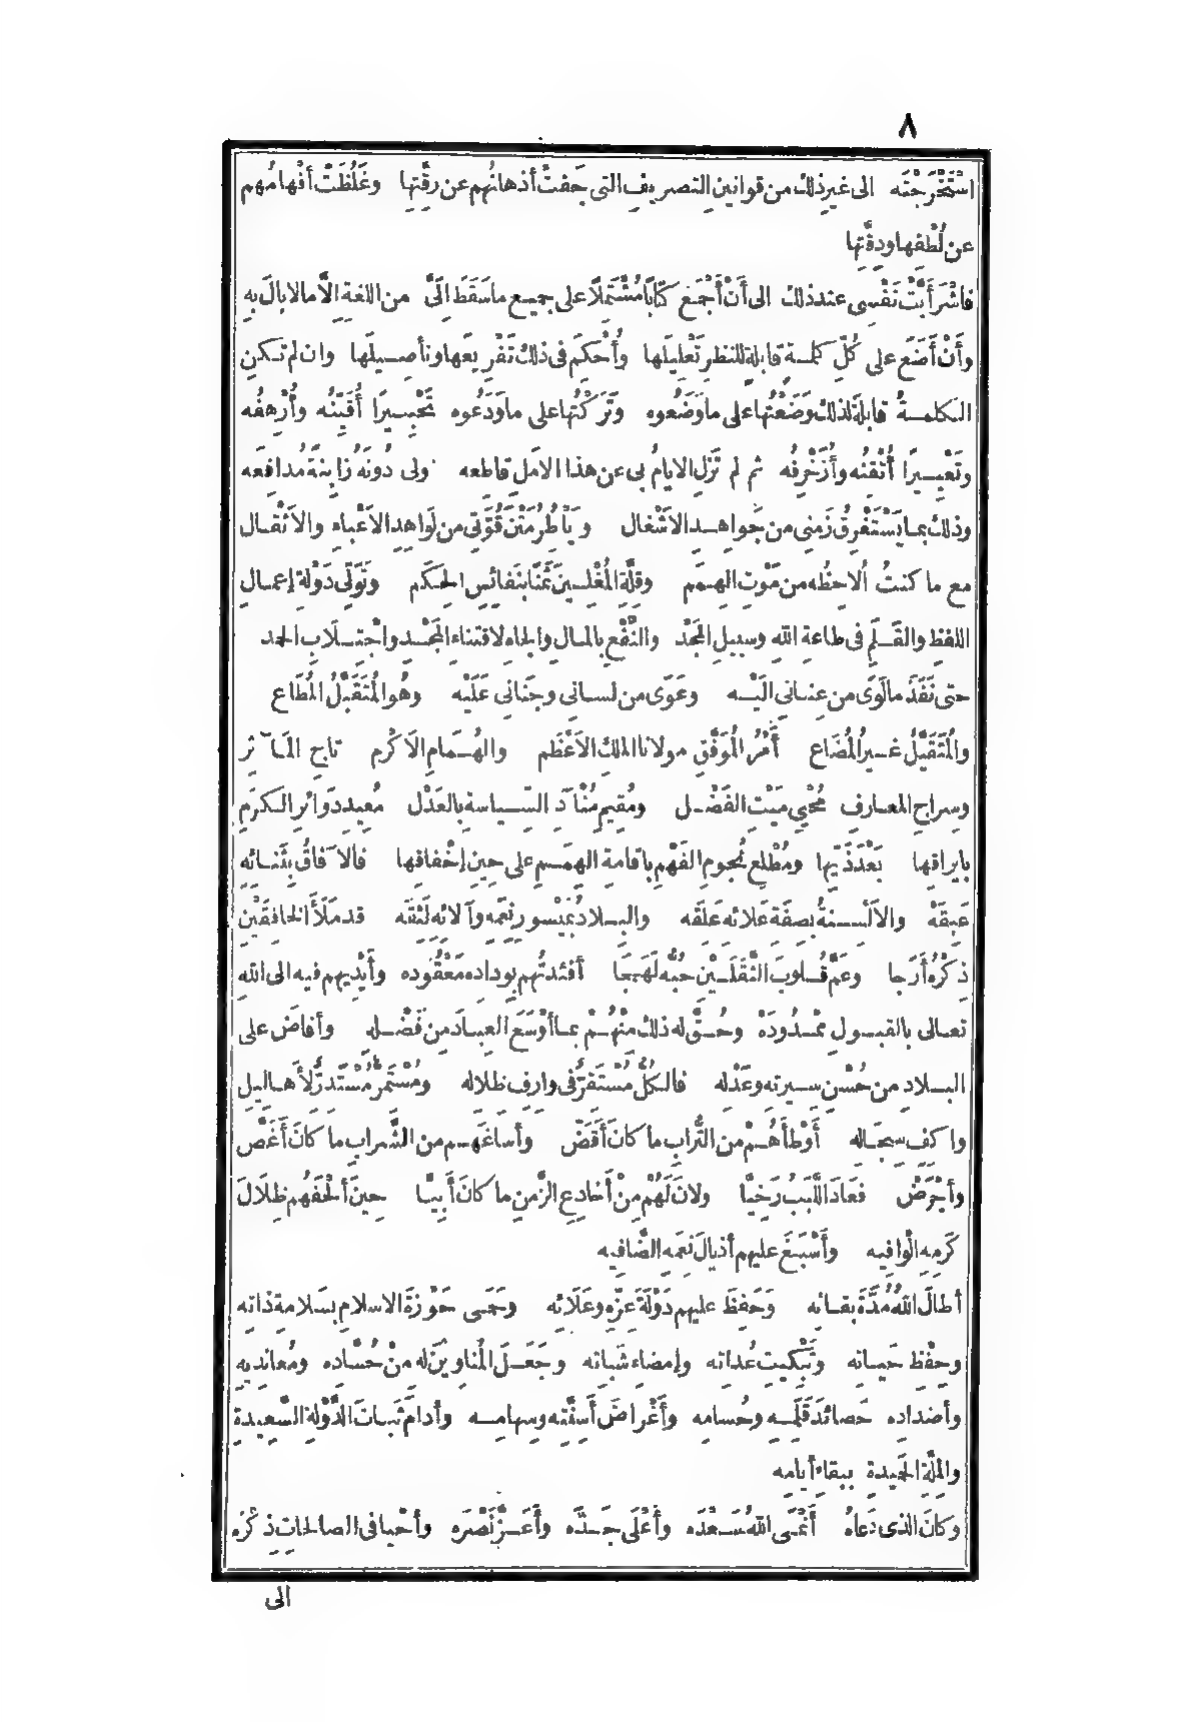 ٨
استَخْرَجْتَه الى غيرِ ذلك من قوانينِ التصريفِ التى جَفتْ أذهانُهم عن رِقَّتِها وغَلُظَتْ أفْهامُهم
عن لُطْفِها ودِقَّتِها
فاشْرَأَبَّتْ نَفْسِى عند ذلك الى أَنْ أَجْمَعَ كتابًا مُشْتَمِلًا على جميع ما سَقَطَ إلَىَّ من اللغةِ إلَّا ما لا بالَ بِهِ
وأَنْ أَضَعَ على كُلِّ كلمة قابلة للنظرِ تَعْلِيلَها وأُحْكِمَ فى ذلك تَفْرِيعَها وتأصِيلَها وان لم تكنِ
الكلمةُ قابلةً لذلك وَضَعْتُها على ما وَضَعُوه وتَرَكْتُها على ما وَدَعُوه تَحْبِيرًا أُقَيِّنُه وأُرْهِفُه
وتَعْبِيرًا أُتْقِنُه وأُزَخْرِفُه ثم لم تَزَلِ الايامُ بى عن هذا الامَل قاطعه ولى دُونَهُ زابِنةً مُدافعَه
وذلك بما يَسْتَغْرِقُ زَمَنِى من جَواهِدِ الاَشْغال ويَأْطُرُ مَتْنَ قُوَّتِى من لَواهِدِ الاَعْباء والاَثْقال
مع ما كنتُ اُلاحِظُه من مَوْتِ الهِمَم وقِلَّةِ المُغْلِينَ ثَمَنًا بنَفائسِ الحِكَم وتَوَلِّى دَوْلةِ إعمالِ
اللفظِ والقَلَمِ فى طاعةِ اللّهِ وسبيلِ المَجْد والنَّفْعِ بالمال والجاه لاقتناءِ المَجْد واجْتِلابِ الحمد
حتى نَفَذَ ما لَوَى من عِنانى الَيْه وعَوَى من لسانى وجَنانى عَلَيْه وهُو المُتَقَبَّلُ المُطَاع
والمُتَقَيَّلُ غيرُ المُضَاع أَمْرُ المُوَفَّقِ مولانا الملك الاَعْظَم والهُمامِ الاَكْرم تاجِ المآثر
وسِراجِ المعارِف مُحْيِى مَيْتِ الفَضْل ومُقِيمِ مُنْآدِ السِّياسة بالعَدْل مُعِيدِ دَوائرِ الكرَمِ
بايراقِها بَعْدَ ذَيِّها ومُطْلِعِ نُجومِ الفَهْمِ باقامةِ الهِمَمِ على حِينِ إخْفاقها فالآفاقُ بثَنائه
عَبِقَهْ والاَلْسنةُ بصِفَةِ عَلائه عَلِقَه والبلادُ بمَيْسورِ نِعَمِه وآلائه لَثِقَه قد مَلَأَ الخافِقَيْنِ
ذِكْرُه أَرَجا وعَمَّ قُلوبَ الثَّقَلَيْن حُبُّه لَهَجَا أفئدتُهم بوداده مَعْقُودَه وأَيْدِيهم فيه الى اللّهِ
تعالى بالقبولِ مَمْدُودَهْ وحُقَّ له ذلك مِنْهُمْ بما أَوْسَعَ العِبادَ من فَضْله وأفاضَ على
البلادِ من حُسْنِ سيرته وعَدْله فالكُلُّ مُسْتَقِرٌّ فى وارِف ظلاله ومُسْتَمِرٌّ مُسْتَدِرٌّ لأَهاليلِ
واكف سِجاله أَوْطأَهُمْ من التُّرابِ ما كانَ أَقَضّ وأساغَهم من الشَّراب ما كانَ أَغَصّ
وأجْرَضْ فعَادَ اللَّبَبُ رَخِيًّا ولانَ لَهُمْ مِنْ أَخادِعِ الزَّمنِ ما كانَ أَبِيًّا حِينَ أَلْحَفَهُم ظِلَالَ
كَرَمِهِ الْوافِيه وأَسْبَغَ عليهم أذيالَ نِعَمِه الضَّافِيه
أطالَ اللّهُ مُدَّةَ بقائِه وَحَفِظَ عليهم دَوْلَةَ عِزِّه وعَلَائِه وحَمَى حَوْزَةَ الاسلامِ بسَلامةِ ذاته
وحِفْظِ حَياته وتَبْكِيتِ عُداته وإمضاءِ شَباته وجَعَلَ المُناوِينَ له مِنْ حُسَّاده ومُعانِدِيه
وأضداده حَصائدَ قَلَمِه وحُسامِه وأَغْراضَ أَسِنَّتِه وسِهامِه وأدامَ ثَباتَ الدَّوْلةِ السَّعِيدةِ
والمِلَّةِ الحَمِيدةِ ببقاءِ أيامه
وكانَ الذى دَعاهُ أَنْمَى اللّهُ سَعْدَه وأَعْلَى جَدَّه وأَعَزَّ نَصْرَه وأحْيا فى الصالحاتِ ذِكْرَه
الى